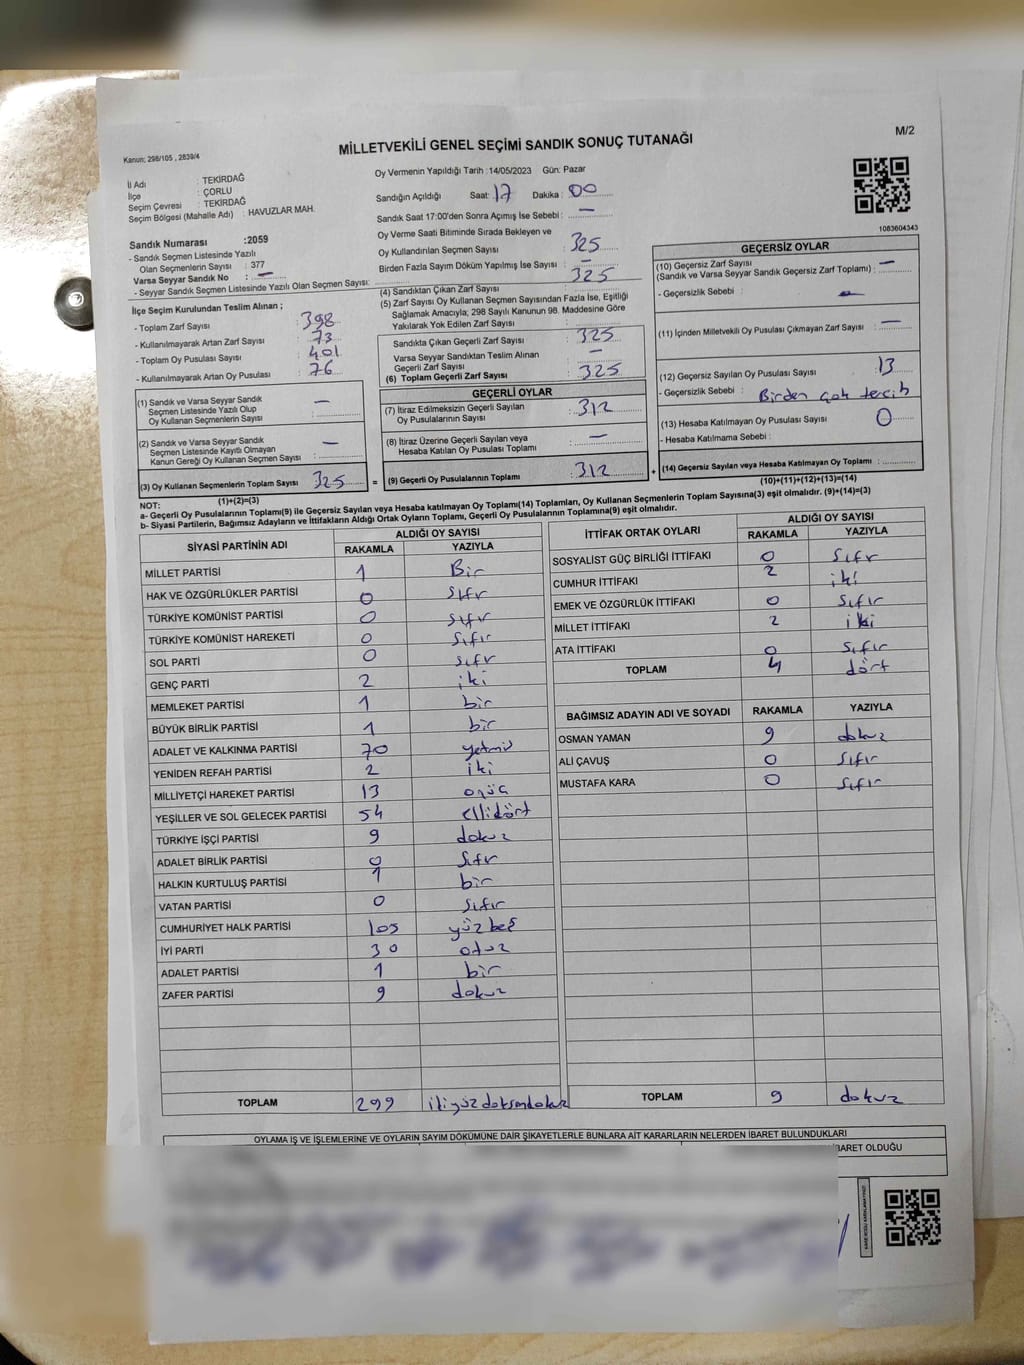 M/2
Kanun: 298/105 , 2839/4
MİLLETVEKİLİ GENEL SEÇİMİ SANDIK SONUÇ TUTANAĞI
İl Adı : TEKİRDAĞ
İlçe : ÇORLU
Seçim Çevresi : TEKİRDAĞ
Seçim Bölgesi (Mahalle Adı) : HAVUZLAR MAH.
Sandık Numarası :2059
- Sandık Seçmen Listesinde Yazılı
Olan Seçmenlerin Sayısı : 377
Varsa Seyyar Sandık No : —
- Seyyar Sandık Seçmen Listesinde Yazılı Olan Seçmen Sayısı:
Oy Vermenin Yapıldığı Tarih :14/05/2023 Gün: Pazar
Sandığın Açıldığı Saat: 17 Dakika : 00
Sandık Saat 17:00'den Sonra Açımış İse Sebebi : —
Oy Verme Saati Bitiminde Sırada Bekleyen ve
Oy Kullandırılan Seçmen Sayısı : 325
Birden Fazla Sayım Döküm Yapılmış İse Sayısı : —
1083604343
İlçe Seçim Kurulundan Teslim Alınan ;
- Toplam Zarf Sayısı : 398
- Kullanılmayarak Artan Zarf Sayısı : 73
- Toplam Oy Pusulası Sayısı : 401
- Kullanılmayarak Artan Oy Pusulası : 76
(1) Sandık ve Varsa Seyyar Sandık
Seçmen Listesinde Yazılı Olup
Oy Kullanan Seçmenlerin Sayısı : —
(2) Sandık ve Varsa Seyyar Sandık
Seçmen Listesinde Kayıtlı Olmayan
Kanun Gereği Oy Kullanan Seçmen Sayısı : —
(3) Oy Kullanan Seçmenlerin Toplam Sayısı : 325
(1)+(2)=(3)
(4) Sandıktan Çıkan Zarf Sayısı : 325
(5) Zarf Sayısı Oy Kullanan Seçmen Sayısından Fazla İse, Eşitliği
Sağlamak Amacıyla; 298 Sayılı Kanunun 98. Maddesine Göre
Yakılarak Yok Edilen Zarf Sayısı :
Sandıkta Çıkan Geçerli Zarf Sayısı : 325
Varsa Seyyar Sandıktan Teslim Alınan
Geçerli Zarf Sayısı : —
(6) Toplam Geçerli Zarf Sayısı : 325
GEÇERLİ OYLAR
(7) İtiraz Edilmeksizin Geçerli Sayılan
Oy Pusulalarının Sayısı : 312
(8) İtiraz Üzerine Geçerli Sayılan veya
Hesaba Katılan Oy Pusulası Toplamı : —
= (9) Geçerli Oy Pusulalarının Toplamı : 312
GEÇERSİZ OYLAR
(10) Geçersiz Zarf Sayısı
(Sandık ve Varsa Seyyar Sandık Geçersiz Zarf Toplamı) : —
- Geçersizlik Sebebi : —
(11) İçinden Milletvekili Oy Pusulası Çıkmayan Zarf Sayısı : —
(12) Geçersiz Sayılan Oy Pusulası Sayısı : 13
- Geçersizlik Sebebi : Birden çok tercih
(13) Hesaba Katılmayan Oy Pusulası Sayısı : 0
- Hesaba Katılmama Sebebi :
+ (14) Geçersiz Sayılan veya Hesaba Katılmayan Oy Toplamı :
(10)+(11)+(12)+(13)=(14)
NOT:
a- Geçerli Oy Pusulasının Toplamı(9) ile Geçersiz Sayılan veya Hesaba katılmayan Oy Toplamı(14) Toplamları, Oy Kullanan Seçmenlerin Toplam Sayısına(3) eşit olmalıdır. (9)+(14)=(3)
b- Siyasi Partilerin, Bağımsız Adayların ve İttifakların Aldığı Ortak Oyların Toplamı, Geçerli Oy Pusulalarının Toplamına(9) eşit olmalıdır.
SİYASİ PARTİNİN ADI ALDIĞI OY SAYISI
RAKAMLA YAZIYLA
MİLLET PARTİSİ 1 Bir
HAK VE ÖZGÜRLÜKLER PARTİSİ 0 sıfır
TÜRKİYE KOMÜNİST PARTİSİ 0 sıfır
TÜRKİYE KOMÜNİST HAREKETİ 0 sıfır
SOL PARTİ 0 sıfır
GENÇ PARTİ 2 iki
MEMLEKET PARTİSİ 1 bir
BÜYÜK BİRLİK PARTİSİ 1 bir
ADALET VE KALKINMA PARTİSİ 70 yetmiş
YENİDEN REFAH PARTİSİ 2 iki
MİLLİYETÇİ HAREKET PARTİSİ 13 onüç
YEŞİLLER VE SOL GELECEK PARTİSİ 54 ellidört
TÜRKİYE İŞÇİ PARTİSİ 9 dokuz
ADALET BİRLİK PARTİSİ 0 sıfır
HALKIN KURTULUŞ PARTİSİ 1 bir
VATAN PARTİSİ 0 sıfır
CUMHURİYET HALK PARTİSİ 105 yüzbeş
İYİ PARTİ 30 otuz
ADALET PARTİSİ 1 bir
ZAFER PARTİSİ 9 dokuz
TOPLAM 299 ikiyüzdoksandokuz
İTTİFAK ORTAK OYLARI ALDIĞI OY SAYISI
RAKAMLA YAZIYLA
SOSYALİST GÜÇ BİRLİĞİ İTTİFAKI 0 sıfır
CUMHUR İTTİFAKI 2 iki
EMEK VE ÖZGÜRLÜK İTTİFAKI 0 sıfır
MİLLET İTTİFAKI 2 iki
ATA İTTİFAKI 0 sıfır
TOPLAM 4 dört
BAĞIMSIZ ADAYIN ADI VE SOYADI RAKAMLA YAZIYLA
OSMAN YAMAN 9 dokuz
ALİ ÇAVUŞ 0 sıfır
MUSTAFA KARA 0 sıfır
TOPLAM 9 dokuz
OYLAMA İŞ VE İŞLEMLERİNE VE OYLARIN SAYIM DÖKÜMÜNE DAİR ŞİKAYETLERLE BUNLARA AİT KARARLARIN NELERDEN İBARET BULUNDUKLARI
İBARET OLDUĞU